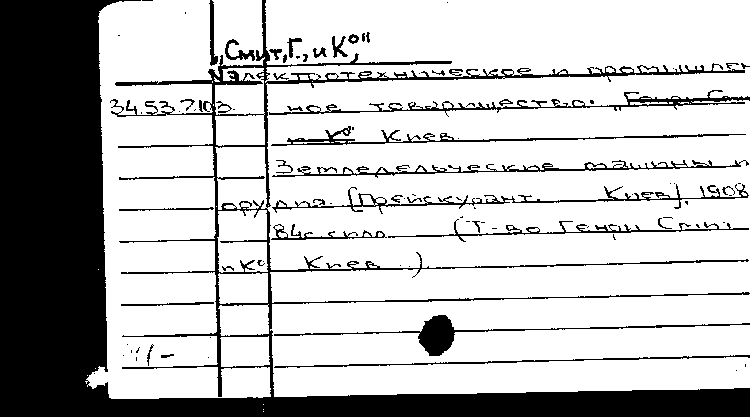 „Смит, Г., и К°“
электротехническое и промышлен
34.53.7103 ное товарищество. „Генри Сми
и К° Киев
Земледельческие машины и
орудия. [Прейскурант. Киев], 1908
84с илл (Т-во Генри Смит
и К° Киев.)